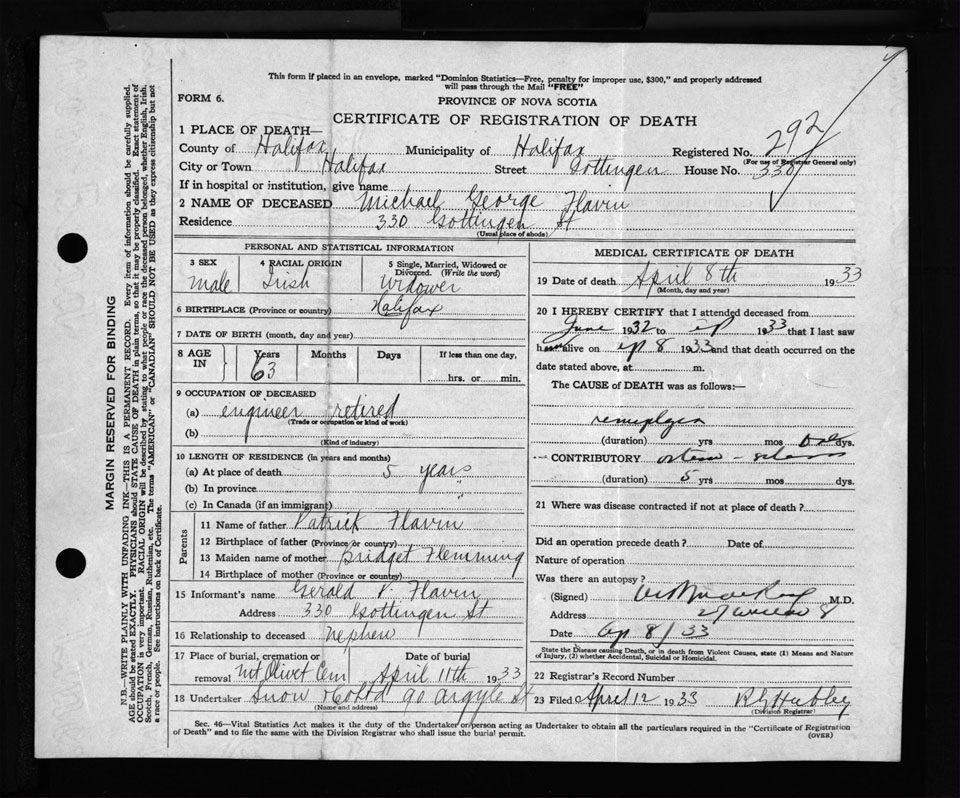 This form if placed in an envelope, marked "Dominion Statistics—Free, penalty for improper use, $300," and properly addressed
will pass through the Mail "FREE"
FORM 6.
PROVINCE OF NOVA SCOTIA
CERTIFICATE OF REGISTRATION OF DEATH
1 PLACE OF DEATH—
County of Halifax Municipality of Halifax Registered No. 292
(For use of Registrar General only)
City or Town Halifax Street Gottingen House No. 330
If in hospital or institution, give name
2 NAME OF DECEASED Michael George Flavin
Residence 330 Gottingen St
(Usual place of abode)
PERSONAL AND STATISTICAL INFORMATION
3 SEX 4 RACIAL ORIGIN 5 Single, Married, Widowed or
Divorced. (Write the word)
Male Irish Widower
6 BIRTHPLACE (Province or country) Halifax
7 DATE OF BIRTH (month, day and year)
8 AGE IN Years Months Days If less than one day,
63 hrs. or min.
9 OCCUPATION OF DECEASED
(a) engineer retired
(Trade or occupation or kind of work)
(b)
(Kind of industry)
10 LENGTH OF RESIDENCE (in years and months)
(a) At place of death 5 years
(b) In province "
(c) In Canada (if an immigrant)
Parents
11 Name of father Patrick Flavin
12 Birthplace of father (Province or country)
13 Maiden name of mother Bridget Flemming
14 Birthplace of mother (Province or country)
15 Informant's name Gerald P. Flavin
Address 330 Gottingen St
16 Relationship to deceased Nephew
17 Place of burial, cremation or removal Date of burial
Mt Olivet Cem April 11th 1933
18 Undertaker Snow & Co Ltd 90 Argyle St
(Name and address)
MEDICAL CERTIFICATE OF DEATH
19 Date of death April 8th 1933
(Month, day and year)
20 I HEREBY CERTIFY that I attended deceased from
June 1932 to ap 1933 that I last saw
h alive on ap 8 1933 and that death occurred on the
date stated above, at m.
The CAUSE of DEATH was as follows:—
(duration) yrs mos dys.
CONTRIBUTORY
(duration) 5 yrs mos dys.
21 Where was disease contracted if not at place of death?
Did an operation precede death? Date of
Nature of operation
Was there an autopsy?
(Signed) M.D.
Address
Date Ap 8/33
State the Disease causing Death, or in death from Violent Causes, state (1) Means and Nature
of Injury, (2) whether Accidental, Suicidal or Homicidal.
22 Registrar's Record Number
23 Filed April 12 1933 Hubley
(Division Registrar)
Sec. 46—Vital Statistics Act makes it the duty of the Undertaker or person acting as Undertaker to obtain all the particulars required in the "Certificate of Registration
of Death" and to file the same with the Division Registrar who shall issue the burial permit.
(OVER)
MARGIN RESERVED FOR BINDING
N.B.—WRITE PLAINLY WITH UNFADING INK—THIS IS A PERMANENT RECORD. Every item of information should be carefully supplied.
AGE should be stated EXACTLY. PHYSICIANS should STATE CAUSE OF DEATH in plain terms, so that it may be properly classified. Exact statement of
OCCUPATION is very important. RACIAL ORIGIN will be described by stating to what people or race the deceased person belonged, whether English, Irish,
Scotch, French, German, Russian, Ruthenian, etc. The terms "AMERICAN" or "CANADIAN" SHOULD NOT BE USED as they express citizenship but not
a race or people. See instructions on back of Certificate.